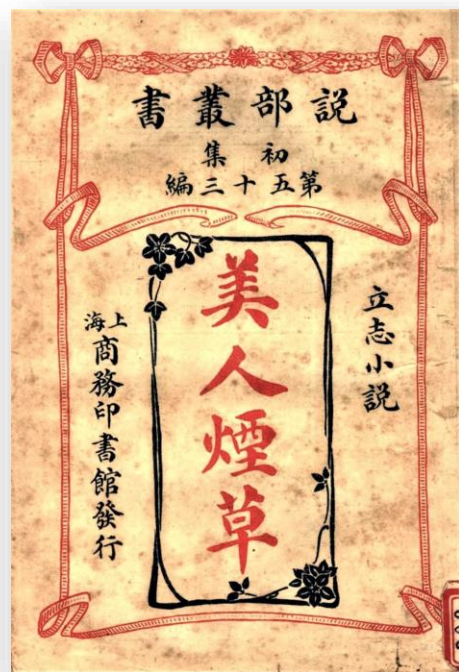 說部叢書
初集
第五十三編
立志小說
美人煙草
上海商務印書館發行